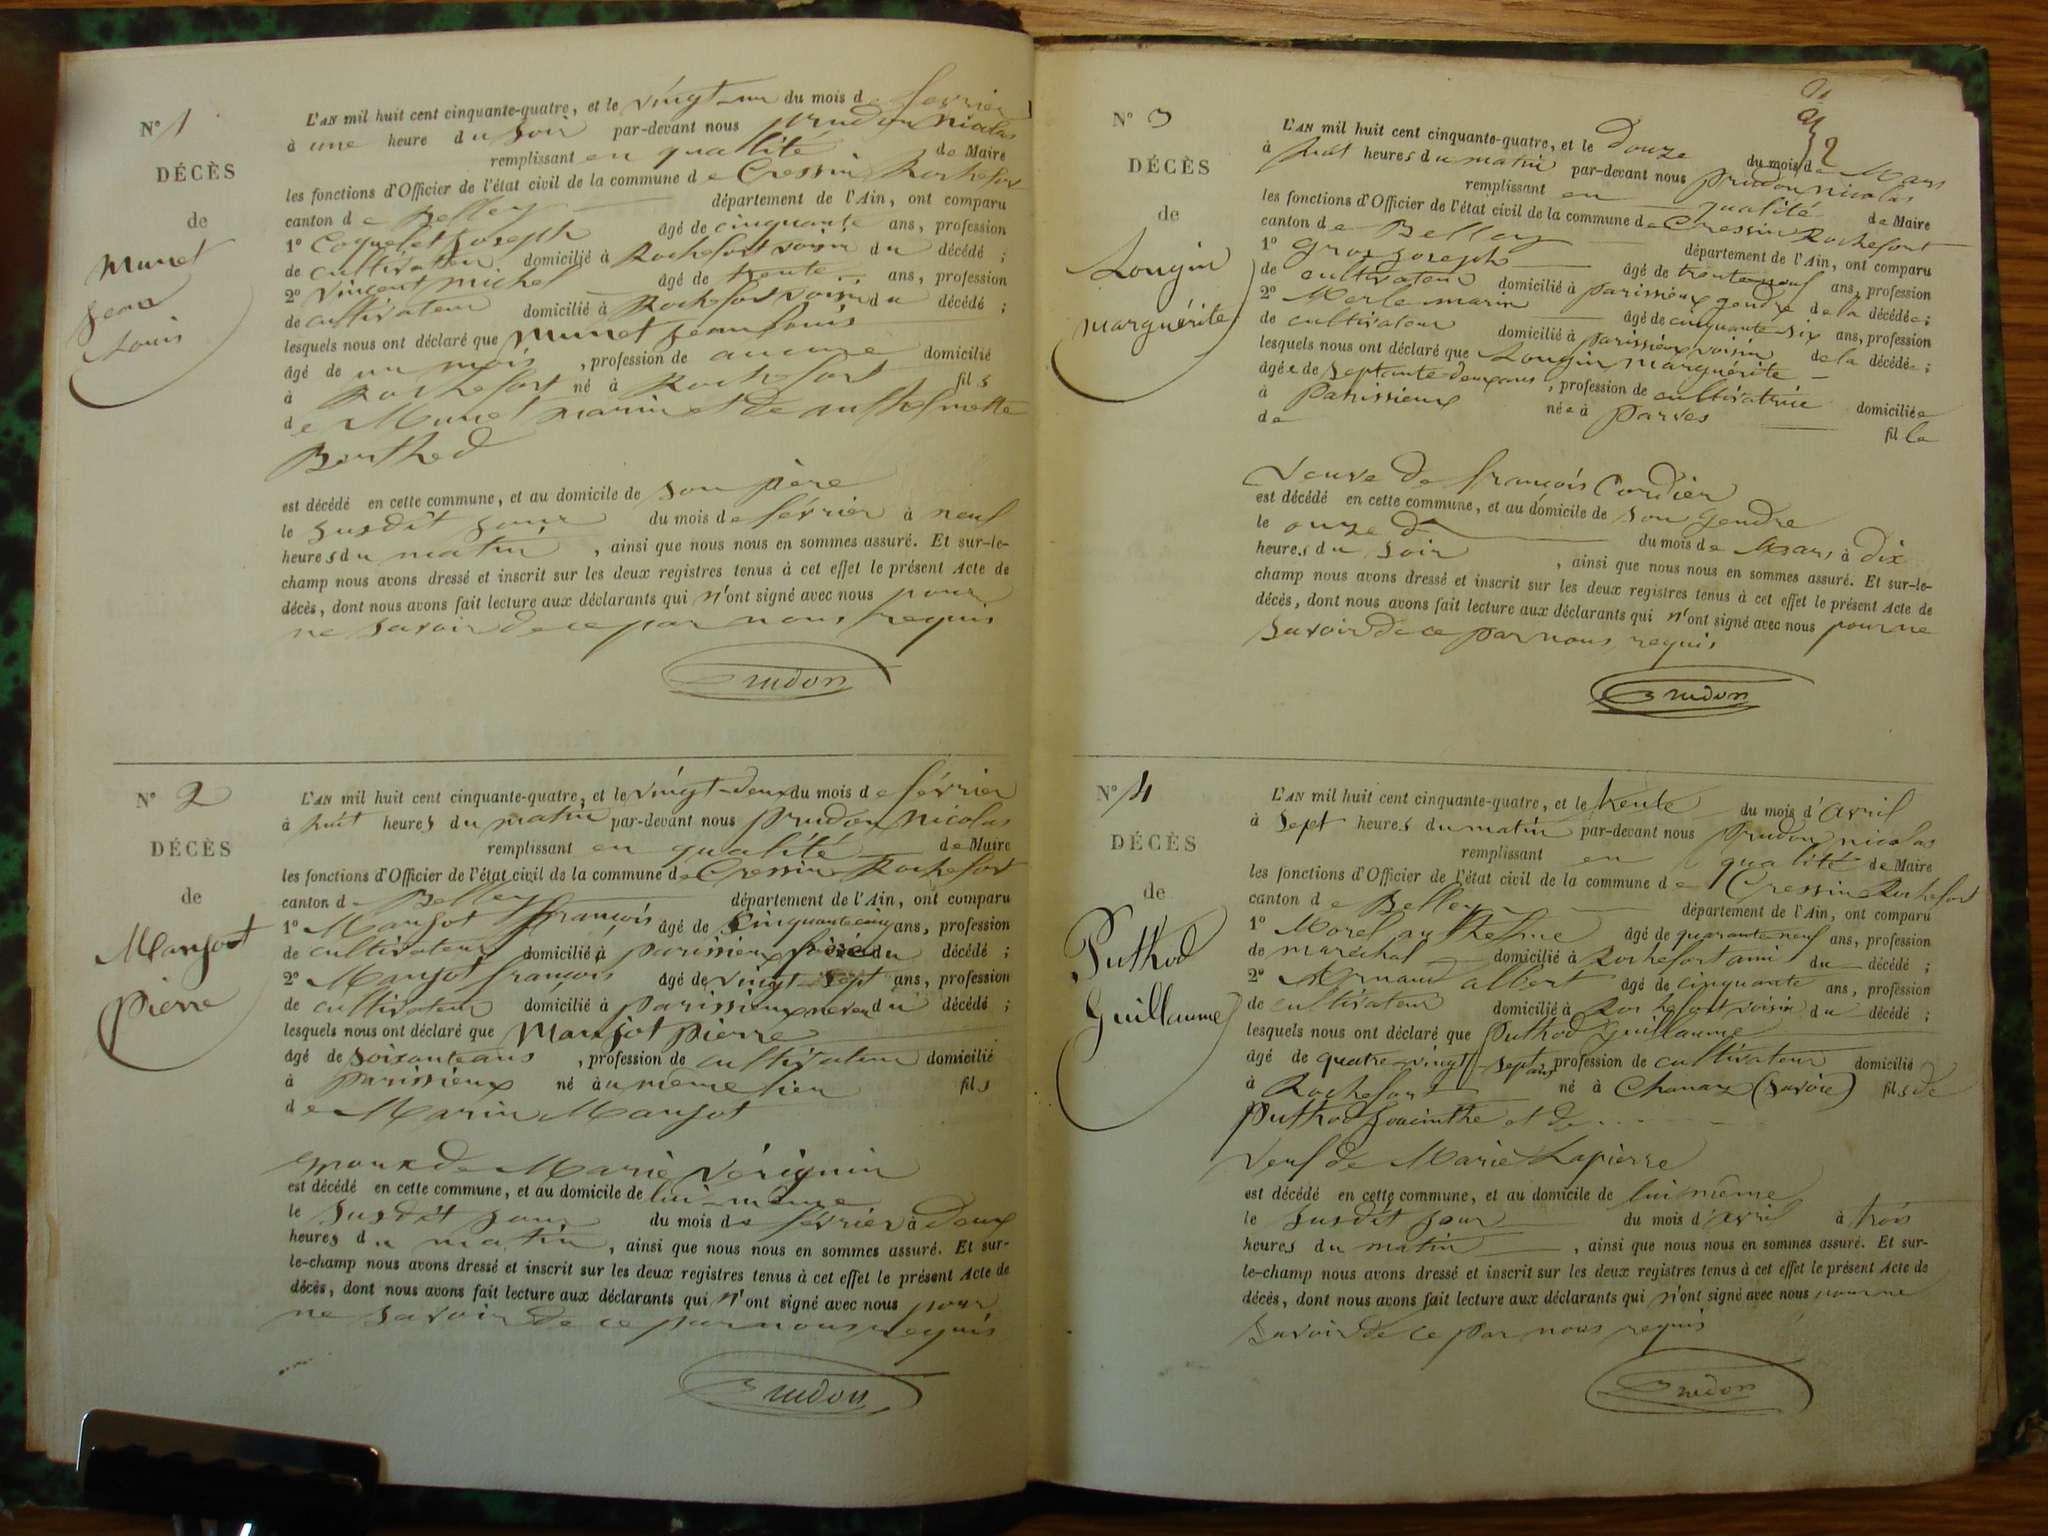 N° 1
DÉCÈS
de
Munet
Jean
Louis
L'AN mil huit cent cinquante-quatre, et le vingt-un du mois de février
à une heure du soir par-devant nous prudon nicolas
remplissant en qualité de Maire
les fonctions d'Officier de l'état civil de la commune de Cressin Rochefort
canton de Belley département de l'Ain, ont comparu
1° Coquelet Joseph âgé de cinquante ans, profession
de cultivateur domicilié à Rochefort voisin du décédé ;
2° Vincent michel âgé de trente ans, profession
de cultivateur domicilié à Rochefort voisin du décédé ;
lesquels nous ont déclaré que Munet Jean Louis
âgé de un mois, profession de aucune domicilié
à Rochefort né à Rochefort fils
de Munet marin et de anthelmette
Berthed
est décédé en cette commune, et au domicile de son père
le susdit jour du mois de février à neuf
heures du matin, ainsi que nous nous en sommes assuré. Et sur-le-
champ nous avons dressé et inscrit sur les deux registres tenus à cet effet le présent Acte de
décès, dont nous avons fait lecture aux déclarants qui n'ont signé avec nous pour
ne savoir de ce par nous requis
Prudon
N° 2
DÉCÈS
de
Manjot
pierre
L'AN mil huit cent cinquante-quatre, et le vingt-deux du mois de février
à huit heures du matin par-devant nous prudon nicolas
remplissant en qualité de Maire
les fonctions d'Officier de l'état civil de la commune de Cressin Rochefort
canton de Belley département de l'Ain, ont comparu
1° Manjot françois âgé de cinquante cinq ans, profession
de cultivateur domicilié à parissieux frère du décédé ;
2° Manjot françois âgé de vingt-sept ans, profession
de cultivateur domicilié à parissieux neveu du décédé ;
lesquels nous ont déclaré que Manjot pierre
âgé de soixante ans, profession de cultivateur domicilié
à parissieux né au même lieu fils
de Marin Manjot
époux de Marie Vérignin
est décédé en cette commune, et au domicile de lui-même
le susdit jour du mois de février à deux
heures du matin, ainsi que nous nous en sommes assuré. Et sur-
le-champ nous avons dressé et inscrit sur les deux registres tenus à cet effet le présent Acte de
décès, dont nous avons fait lecture aux déclarants qui n'ont signé avec nous pour
ne savoir de ce par nous requis
Prudon
N° 3
DÉCÈS
de
Longin
marguérite
L'AN mil huit cent cinquante-quatre, et le Douze du mois de Mars
à huit heures du matin par-devant nous prudon nicolas
remplissant en qualité de Maire
les fonctions d'Officier de l'état civil de la commune de Cressin Rochefort
canton de Belley département de l'Ain, ont comparu
1° gros Joseph âgé de trente neuf ans, profession
de cultivateur domicilié à parissieux gendre de la décédée ;
2° Merle marin âgé de cinquante six ans, profession
de cultivateur domicilié à parissieux voisin de la décédée ;
lesquels nous ont déclaré que Longin marguérite
âgée de septante deux ans, profession de cultivatrice domiciliée
à Parissieux née à parves fille
de
Veuve de françois Cordier
est décédé en cette commune, et au domicile de son gendre
le onze du mois de Mars à dix
heures du soir, ainsi que nous nous en sommes assuré. Et sur-le-
champ nous avons dressé et inscrit sur les deux registres tenus à cet effet le présent Acte de
décès, dont nous avons fait lecture aux déclarants qui n'ont signé avec nous pour ne
savoir de ce par nous requis
Prudon
N° 4
DÉCÈS
de
Puthod
Guillaume
L'AN mil huit cent cinquante-quatre, et le trente du mois d'avril
à sept heures du matin par-devant nous prudon nicolas
remplissant en qualité de Maire
les fonctions d'Officier de l'état civil de la commune de Cressin Rochefort
canton de Belley département de l'Ain, ont comparu
1° Morel anthelme âgé de quarante neuf ans, profession
de maréchal domicilié à Rochefort ami du décédé ;
2° Arnaud albert âgé de cinquante ans, profession
de cultivateur domicilié à Rochefort voisin du décédé ;
lesquels nous ont déclaré que Puthod guillaume
âgé de quatre-vingt-sept ans profession de cultivateur domicilié
à Rochefort né à Chanaz (Savoie) fils de
Puthod Jyacinthe et de
Veuf de Marie Lapierre
est décédé en cette commune, et au domicile de lui même
le susdit jour du mois d'avril à trois
heures du matin, ainsi que nous nous en sommes assuré. Et sur-
le-champ nous avons dressé et inscrit sur les deux registres tenus à cet effet le présent Acte de
décès, dont nous avons fait lecture aux déclarants qui n'ont signé avec nous pour ne
savoir de ce par nous requis
Prudon